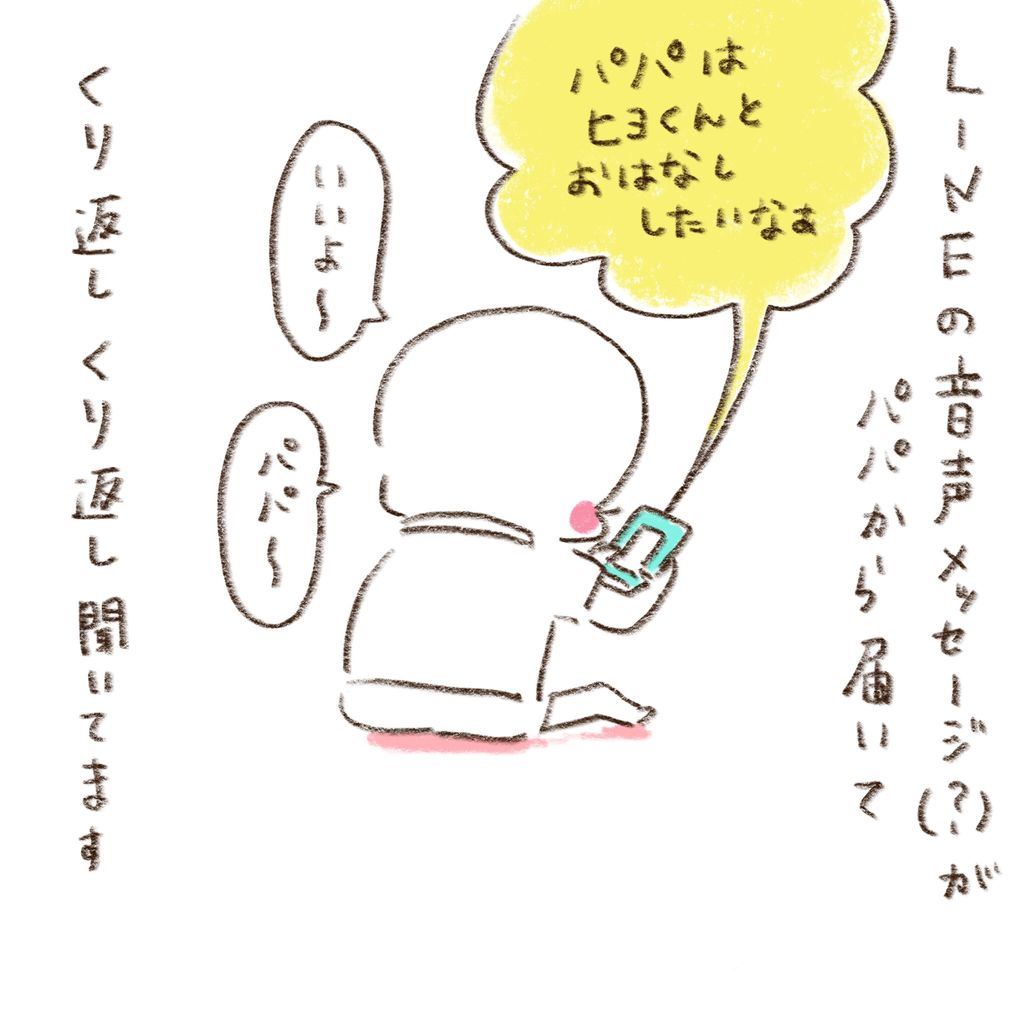 LINEの音声メッセージ(?)が
パパから届いて
パパは
ヒヨくんと
おはなし
したいなぁ
いいよ〜
パパ〜
くり返しくり返し聞いてます